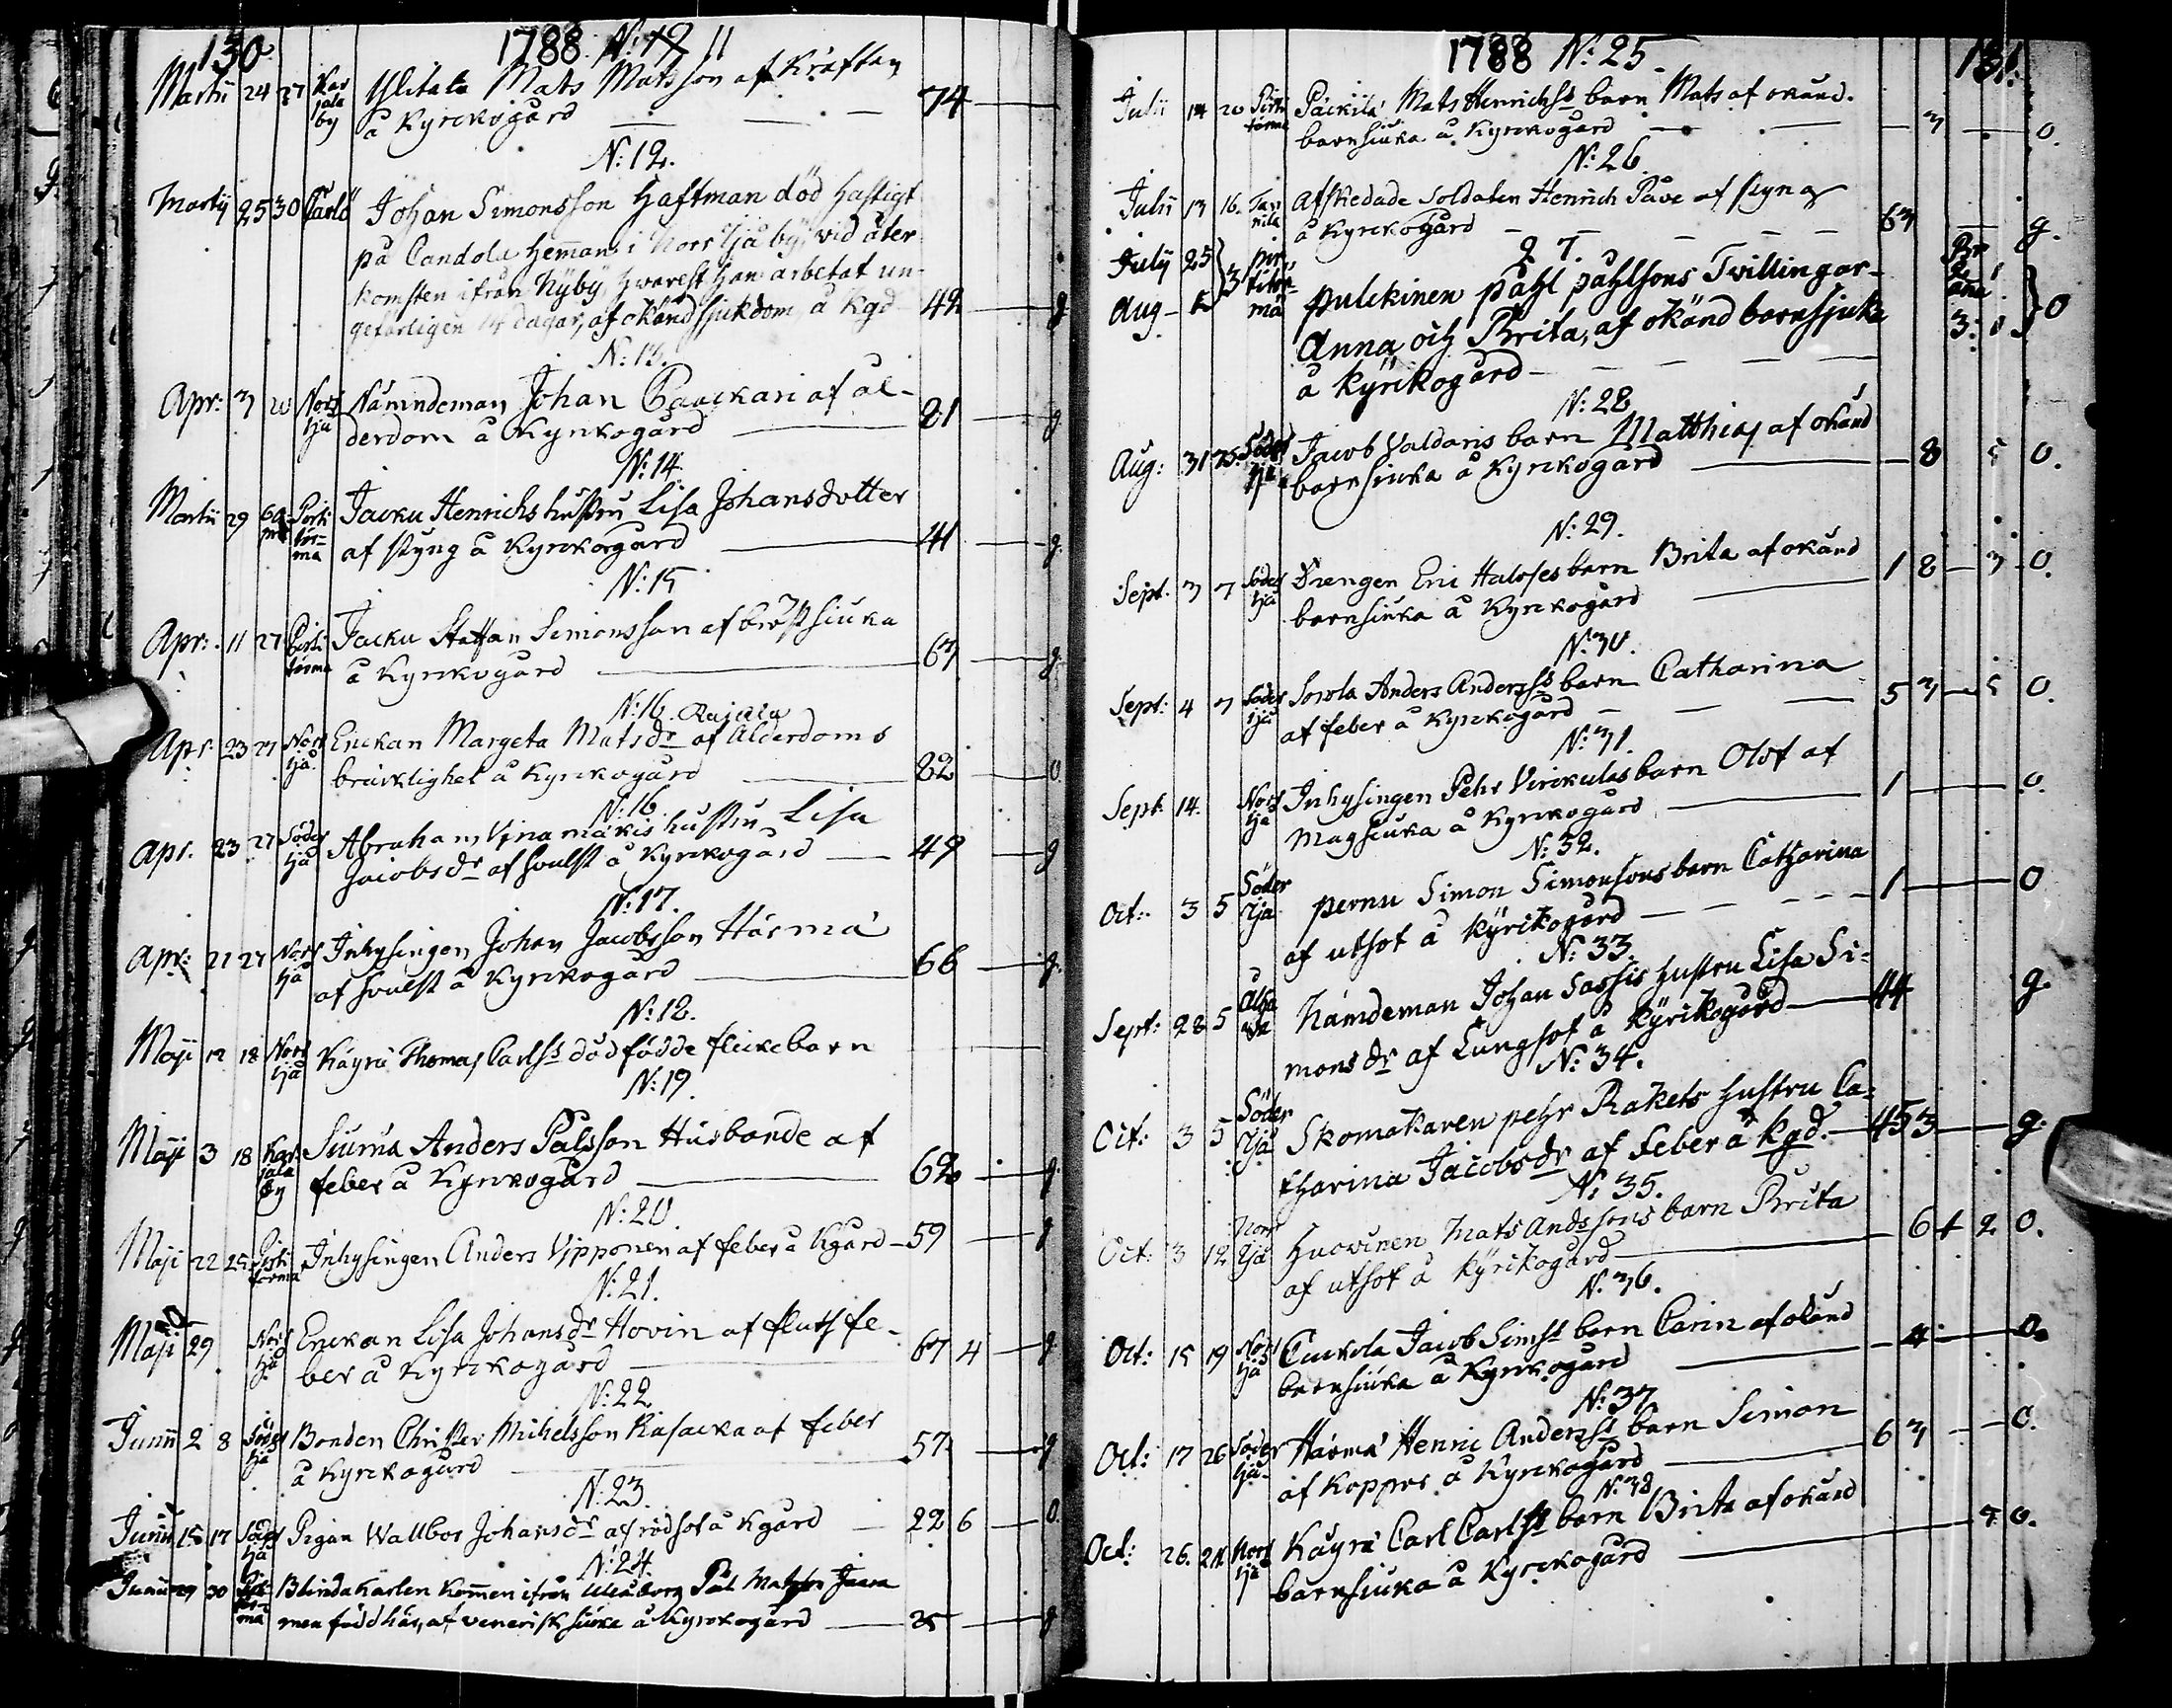 130. 1788. N: 12 11
Martii 24 27 Karjala by Ylitalo Mats Matsson af kräftan
å Kyrckogård 74
N: 12.
Martij 25 30 Carlö Johan Simonsson Haftman död hastigt
på Candola hemman i Norr Ijå by, vid åter-
komsten ifrån Nÿbÿ, hwarest han arbetat un-
gefärligen 14 dagar, af okänd sjukdom å kgd 42 g
N: 13.
Apr: 3 20 Norr Ijå Nämndeman Johan Paackari af ål-
derdom å Kyrckogård 81 g
N: 14.
Martii 29 Pirti törma Jacku Henrichs hustru Lisa Johansdotter
af styng å Kyrckogård 41 g.
N: 15
Apr: 11 27 Pirti törma Jacku Staffan Simonsson af bröstsiuka
å Kyrckogård 67 g.
N: 16. Rajala
Apr. 23 27 Norr Ijå Enckan Margeta Matsdr af Ålderdoms
bräcklighet å Kyrckogård 82 0.
N: 16.
Apr. 23 27 Söder Ijå Abraham Vinamäkis hustru Lisa
Jacobsdr af svulst å Kyrckogård 49 g
N: 17.
Apr: 21 27 Norr Ijå Inhysingen Johan Jacobsson Härmä
af svulst å Kyrckogård 66 g.
N: 12.
Maji 12 18 Norr Ijå Käyrä Thomas Carlss dödfödde flickebarn
N: 19.
Maji 3 18 Karjala by Siurua Anders Pålsson Husbonde af
feber å Kyrckogård 62 g
N: 20.
Maji 22 25 Pirti törma Inhysingen Anders Vipponen af feber å Kgård 59 g
N: 21.
Maji 29 Norr Ijå Enckan Lisa Johansdr Hovin af flussfe-
ber å Kyrckogård 67 4 g
N: 22.
Junii 2 8 Söder Ijå Bonden Christer Michelsson Kasacka af feber
å Kyrckogård 57 g
N: 23.
Junii 15 17 Söder Ijå Pigan Wallbor Johansdr af rödsot å Kgård 22 6 0
N: 24.
Junii 29 30 Blinda Karlen kommen ifrån Uleåborg Pål Matsson Jaara
men född här, af venerisk siuka å Kyrckogård 25 g
1788 N: 25. 131.
Julii 14 20 Pirti törma Päckilä Mats Henrichss barn Mats af okänd
barnsiuka å Kyrckogård 3 0.
N: 26.
Julii 13 16. Tannila Afskedade Soldaten Henrich Påve af styng
å Kyrckogård 63 g.
27.
July 25 Aug 3 pirtitörmä pulckinen påhl påhlsons Tvillingar
Anna och Brita, af okänd barnsjuka 0
å kÿrckogård
N: 28
Aug: 31 Söder Ijå Jacob Valdaris barn Matthias af okänd
barnsiucka å Kyrckogård 8 5 0.
N: 29.
Sept. 3 7 Söder Ijå Drengen Eric Haloses barn Brita af okänd
barnsiuka å Kyrckogård 1 8 3 0.
N: 30.
Sept: 4 7 Söder Ijå Sorola Anders Anderss barn Catharina
af feber å Kyrckogård 5 3 5 0.
N: 31.
Sept. 14. Norr Ijå Inhysingen Pehr Virckulas barn Olof af
Magsiuka å Kyrckogård 1 0.
N: 32.
Oct: 3 5 Söder Ijå pernu Simon Simonsons barn Catharina
af utsot å kÿrckogård 1 0
N: 33.
Sept: 28 5 Nämdeman Johan Sassis hustru Lisa Si-
monsdr af Lungsot å kÿrckogård 44 g.
N: 34.
Oct: 3 5 Söder Ijå Skomakaren pehr Rakets hustru Ca-
tharina Jacobsdr af Feber å kgd. 45 3 g.
N: 35.
Oct: 3 12 Norr Ijå Huovinen Mats Andssons barn Brita
af utsot å kÿrckogård 6 4 2 0.
N: 36.
Oct: 15 19 Norr Ijå Cuckola Jacob Simss barn Carin af okänd
barnsiuka å Kyrckogård 4 0.
N: 37
Oct: 17 26 Söder Ijå Härmä Henric Anderss barn Simon
af koppor å Kyrckogård 6 3 0.
N: 38
Oct: 26. Norr Ijå Käyrä Carl Carlss barn Brita af okänd
barnsiuka å Kyrckogård 0.